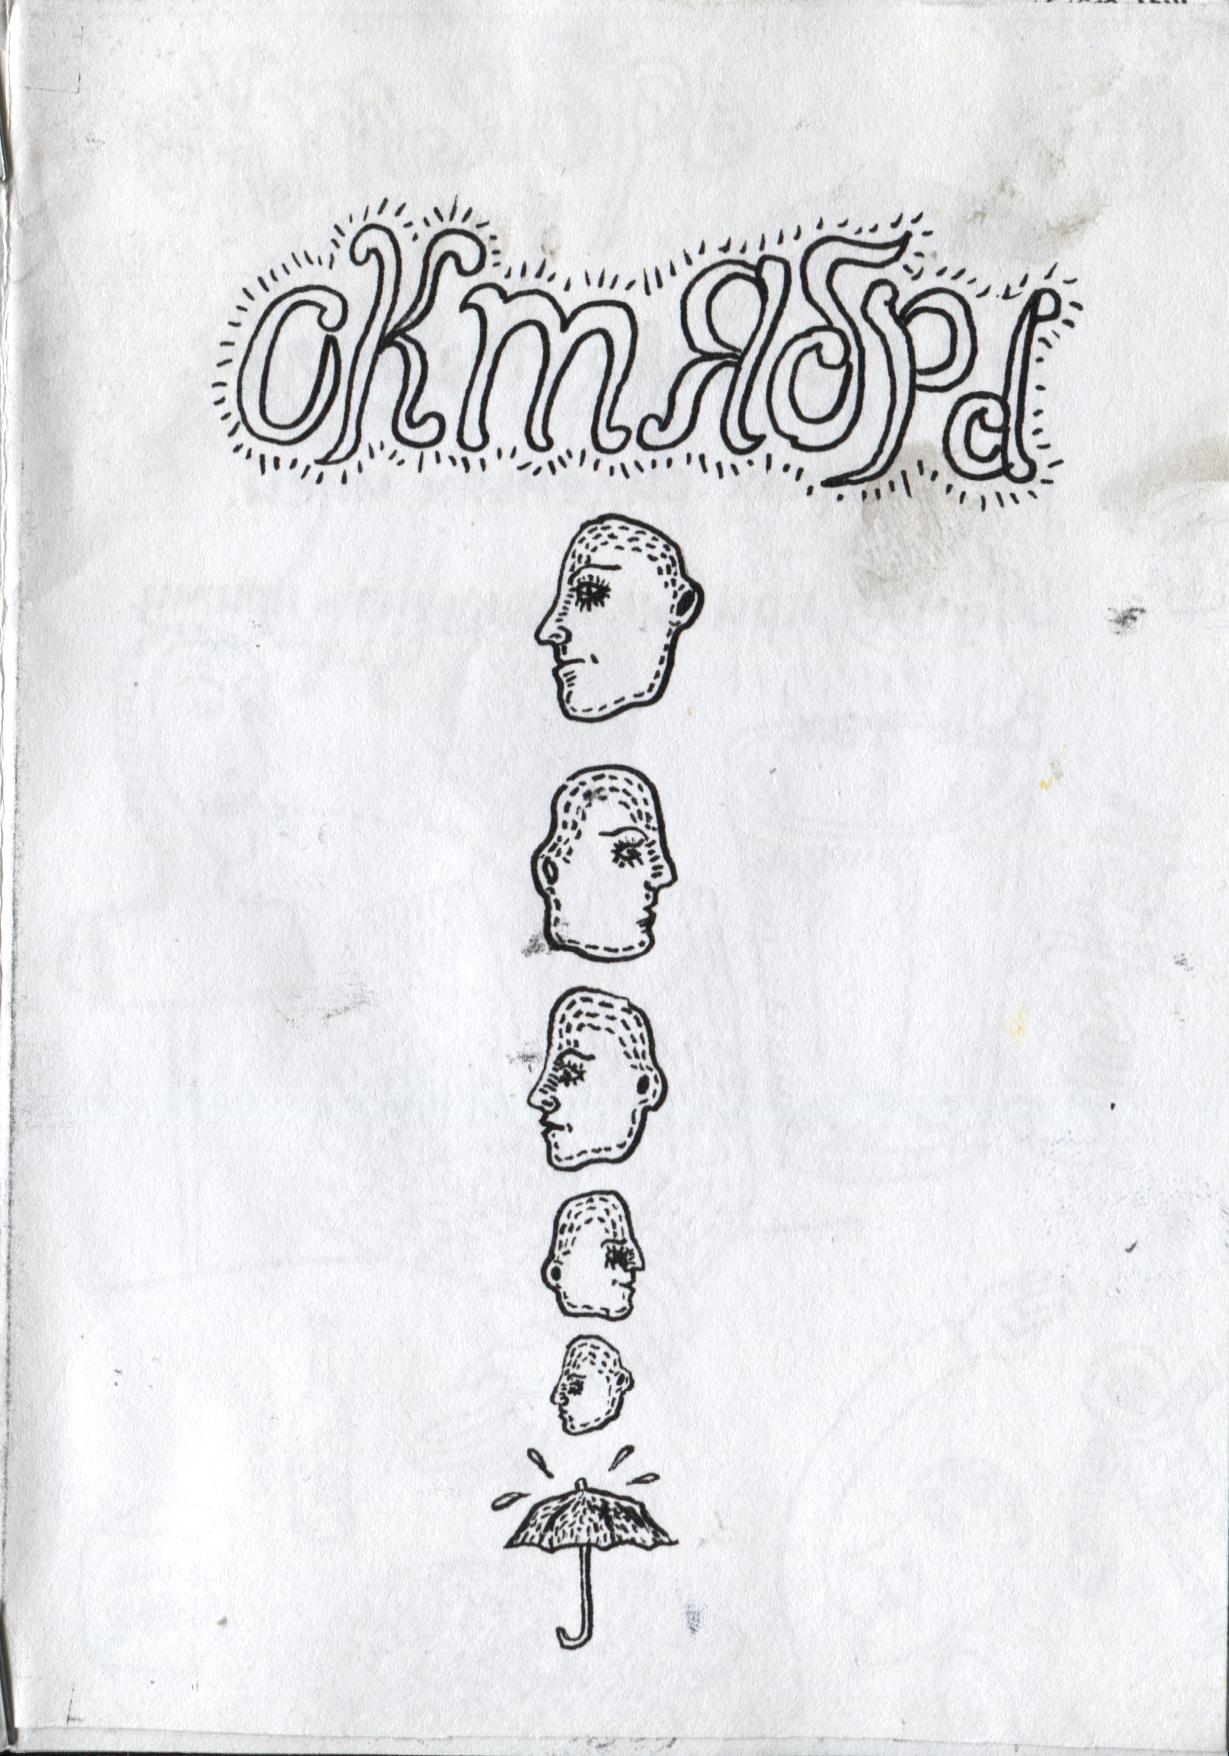 октябрь